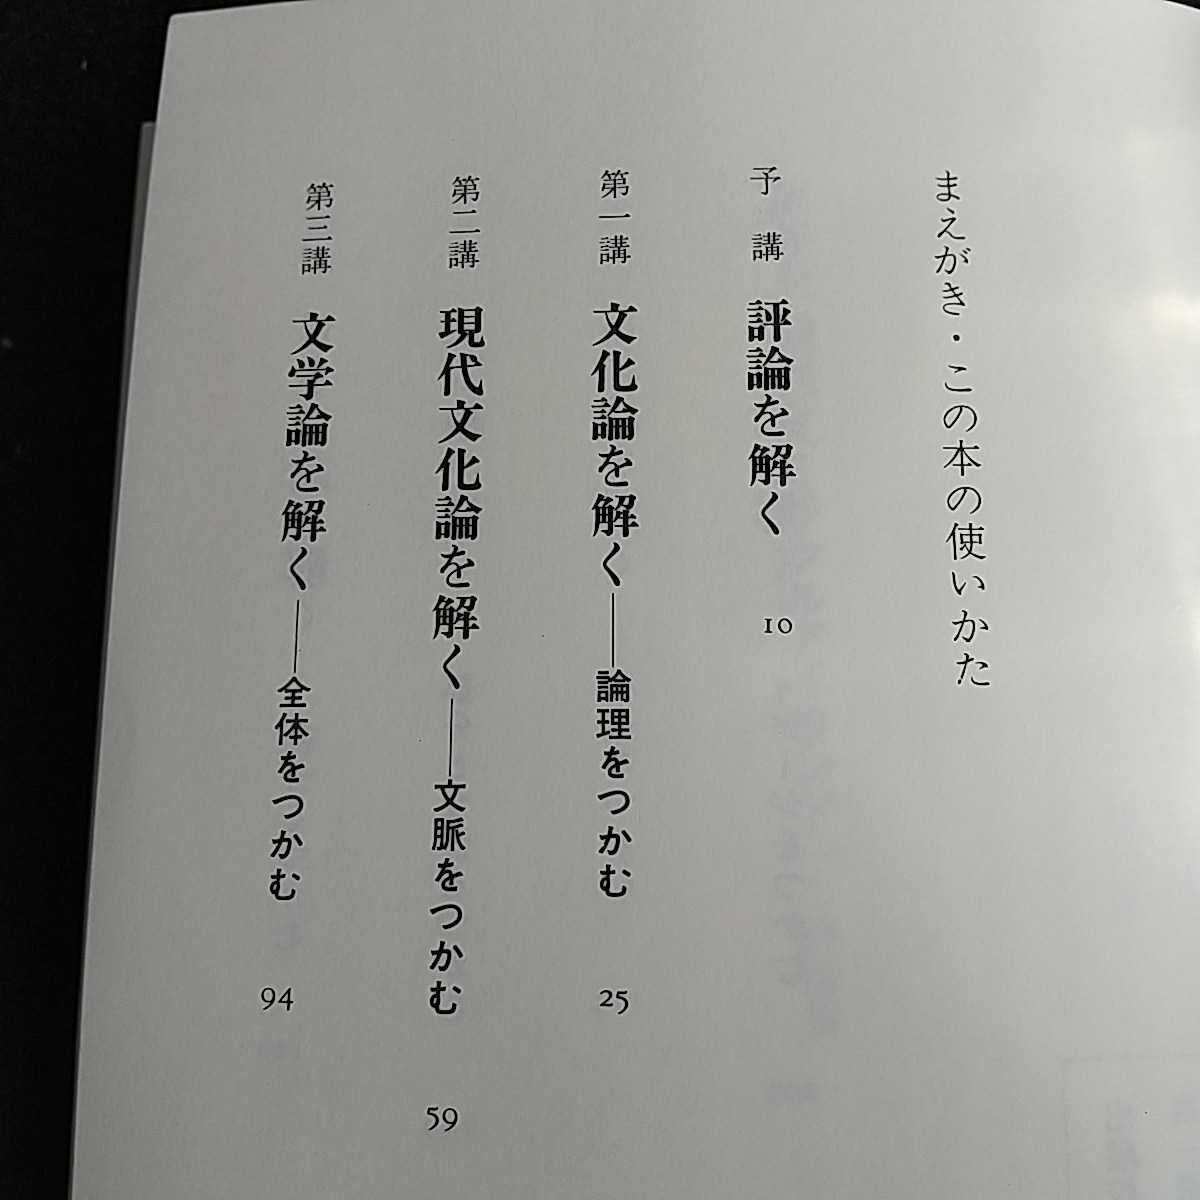 まえがき・この本の使いかた
予講 評論を解く 10
第一講 文化論を解く——論理をつかむ 25
第二講 現代文化論を解く——文脈をつかむ 59
第三講 文学論を解く——全体をつかむ 94